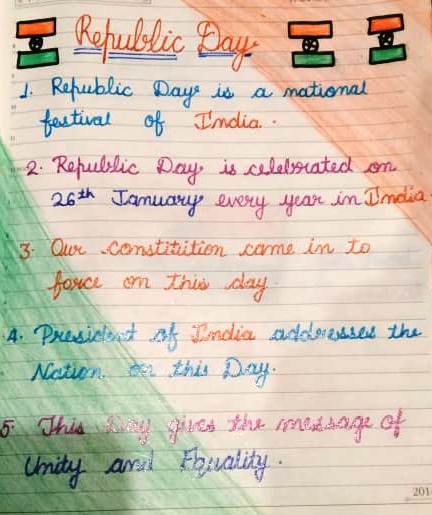 Republic Day
1. Republic Day is a national
festival of India.
2. Republic Day is celebrated on
26th January every year in India.
3. Our constitution came in to
force on this day
4. President of India addresses the
Nation on this Day.
5. This Day gives the message of
Unity and Equality.
201